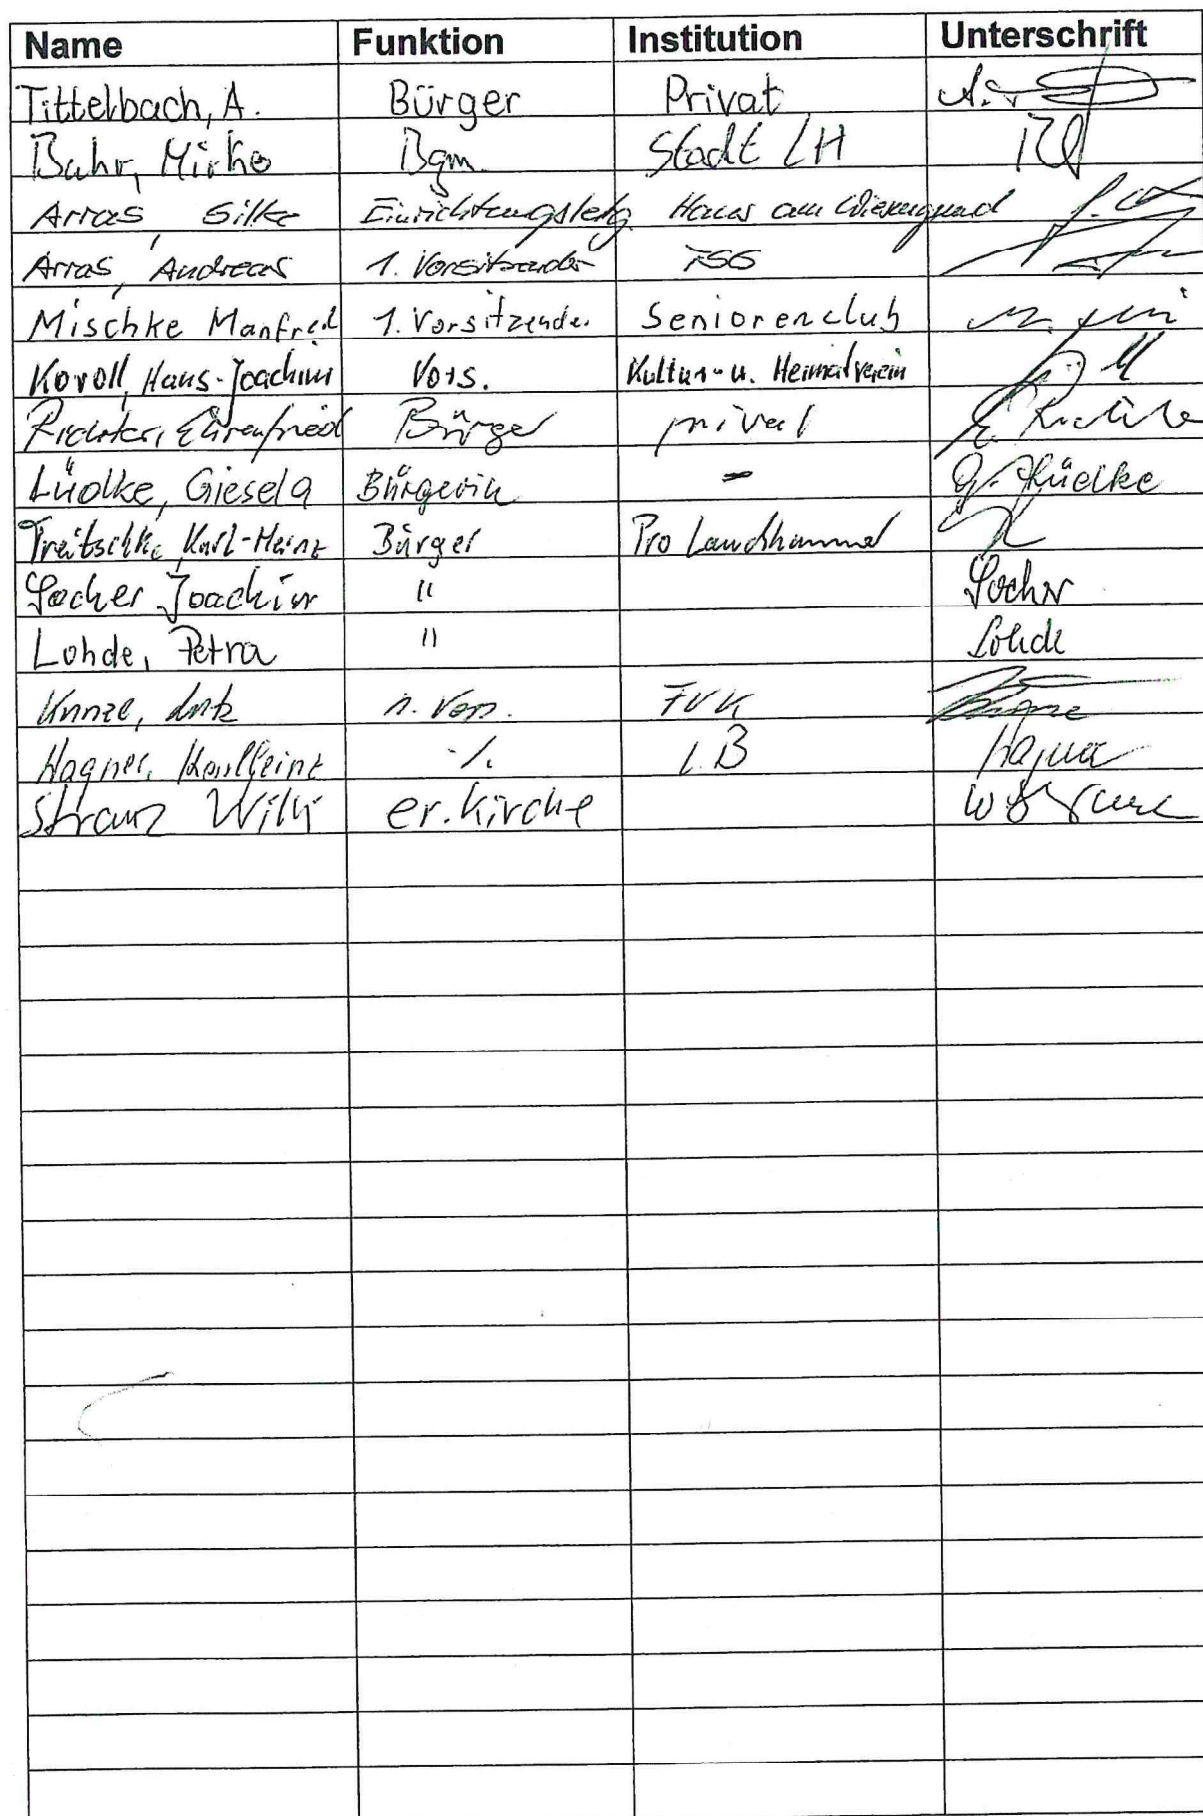 Name Funktion Institution Unterschrift
Tittelbach, A. Bürger Privat
Bahr, Mirko Bgm. Stadt LH
Arras, Silke Einrichtungsleitg. Haus am Wiesengrund
Arras, Andreas 1. Vorsitzender TSG
Mischke Manfred 1. Vorsitzender Seniorenclub
Koroll, Hans-Joachim Vors. Kultur- u. Heimatverein
Richter, Ehrenfried Bürger privat E. Richter
Lüdke, Giesela Bürgerin - G. Lüdke
Treitschke, Karl-Heinz Bürger Pro Lauchhammer
Locher Joachim " Locher
Lohde, Petra " Lohde
Kunze, Lutz 1. Vors. Kunze
Hagner, Karlheinz ./. LB Hagner
Stranz Willi ev. Kirche